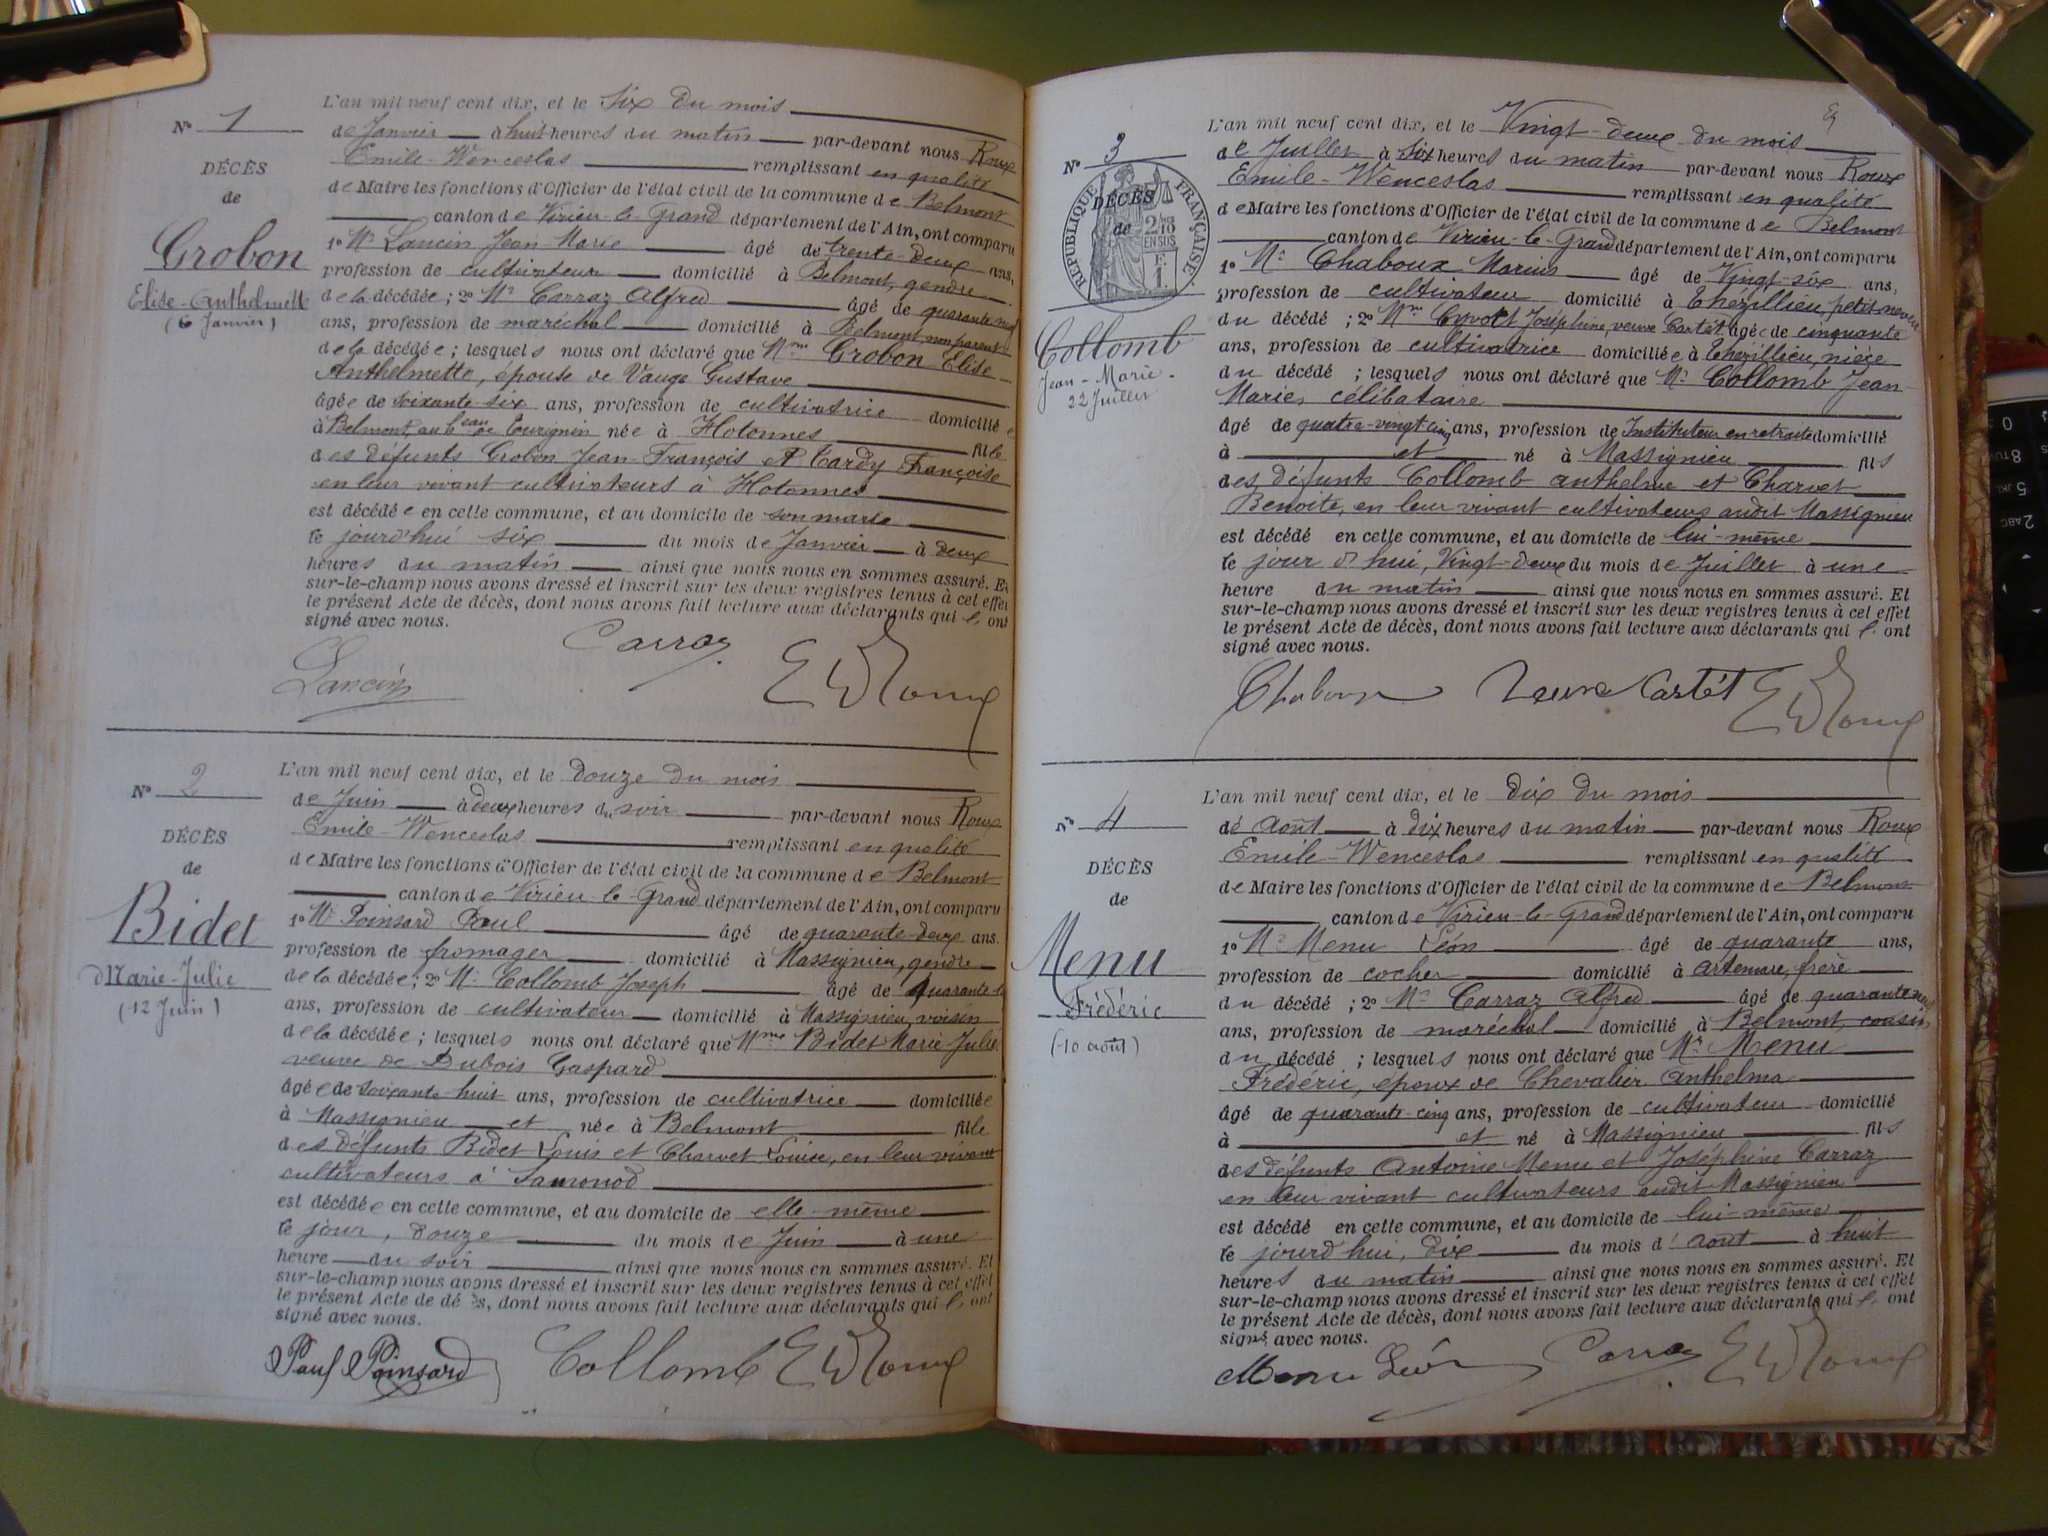 L'an mil neuf cent dix, et le Six du mois
Nº 1
de Janvier à huit heures du matin par-devant nous Roux
Emile-Wenceslas remplissant en qualité
DÉCÈS
de Maire les fonctions d'Officier de l'état civil de la commune de Belmont
de
canton de Virieu-le-Grand département de l'Ain, ont comparu
Grobon
1º Mr Lancin Jean-Marie âgé de trente-deux ans,
profession de cultivateur domicilié à Belmont, gendre
Elise-Anthelmette
de la décédée; 2º Mr Carraz Alfred âgé de quarante neuf
(6 Janvier)
ans, profession de maréchal domicilié à Belmont, non parent
de la décédée; lesquels nous ont déclaré que Mme Grobon Elise
Anthelmette, épouse de Vauge Gustave
âgée de soixante-six ans, profession de cultivatrice domiciliée
à Belmont, au heau de née à Hotonnes fille
des défunts Grobon Jean-François et Tardy Françoise
en leur vivant cultivateurs à Hotonnes
est décédée en cette commune, et au domicile de son mari
le jourd'hui six du mois de Janvier à deux
heures du matin ainsi que nous nous en sommes assuré. Et
sur-le-champ nous avons dressé et inscrit sur les deux registres tenus à cet effet
le présent Acte de décès, dont nous avons fait lecture aux déclarants qui l' ont
signé avec nous.
Lancin Carraz E W Roux
L'an mil neuf cent dix, et le douze du mois
Nº 2
de Juin à deux heures du soir par-devant nous Roux
Emile-Wenceslas remplissant en qualité
DÉCÈS
de Maire les fonctions d'Officier de l'état civil de la commune de Belmont
de
canton de Virieu-le-Grand département de l'Ain, ont comparu
Bidet
1º Mr Poinsard Paul âgé de quarante-deux ans.
profession de fromager domicilié à Massignieu, gendre
Marie-Julie
de la décédée; 2º Mr Collomb Joseph âgé de quarante
(12 Juin)
ans, profession de cultivateur domicilié à Massignieu, voisin
de la décédée; lesquels nous ont déclaré que Mme Bidet Marie Julie
veuve de Dubois Gaspard
âgée de soixante-huit ans, profession de cultivatrice domiciliée
à Massignieu et née à Belmont fille
des défunts Bidet Louis et Charvet Louise, en leur vivant
cultivateurs à
est décédée en cette commune, et au domicile de elle-même
le jour, douze du mois de Juin à une
heure du soir ainsi que nous nous en sommes assuré. Et
sur-le-champ nous avons dressé et inscrit sur les deux registres tenus à cet effet
le présent Acte de décès, dont nous avons fait lecture aux déclarants qui l' ont
signé avec nous.
Paul Poinsard Collomb E W Roux
L'an mil neuf cent dix, et le Vingt-deux du mois
Nº 3
de Juillet à six heures du matin par-devant nous Roux
Emile-Wenceslas remplissant en qualité
RÉPUBLIQUE FRANÇAISE.
DÉCÈS
de
2/10 EN SUS
F
1.
de Maire les fonctions d'Officier de l'état civil de la commune de Belmont
canton de Virieu-le-Grand département de l'Ain, ont comparu
1º Mr Chaboux Marius âgé de Vingt-six ans,
profession de cultivateur domicilié à Thézillieu, petit neveu
du décédé; 2º Mme Cyvoct Joséphine, veuve Cartét âgée de cinquante
Collomb
ans, profession de cultivatrice domiciliée à Thézillieu, nièce
Jean-Marie.
du décédé; lesquels nous ont déclaré que Mr Collomb Jean-
22 Juillet
Marie, célibataire
âgé de quatre-vingt cinq ans, profession de Instituteur en retraite domicilié
à et né à Massignieu fils
des défunts Collomb Anthelme et Charvet
Benoite, en leur vivant cultivateurs audit Massignieu
est décédé en cette commune, et au domicile de lui-même
le jour d'hui, Vingt-deux du mois de Juillet à une
heure du matin ainsi que nous nous en sommes assuré. Et
sur-le-champ nous avons dressé et inscrit sur les deux registres tenus à cet effet
le présent Acte de décès, dont nous avons fait lecture aux déclarants qui l' ont
signé avec nous.
Chaboux Veuve Cartét E W Roux
L'an mil neuf cent dix, et le dix du mois
Nº 4
dé Août à dix heures du matin par-devant nous Roux
Emile-Wenceslas remplissant en qualité
DÉCÈS
de Maire les fonctions d'Officier de l'état civil de la commune de Belmont
de
canton de Virieu-le-Grand département de l'Ain, ont comparu
Menu
1º Mr Menu Léon âgé de quarante ans,
profession de cocher domicilié à Artemare, frère
Frédéric
du décédé; 2º Mr Carraz Alfred âgé de quarante neuf
(10 août)
ans, profession de maréchal domicilié à Belmont, cousin
du décédé; lesquels nous ont déclaré que Mr Menu
Frédéric, époux de Chevalier Anthelma
âgé de quarante-cinq ans, profession de cultivateur domicilié
à et né à Massignieu fils
des défunts Antoine Menu et Joséphine Carraz
en leur vivant cultivateurs audit Massignieu
est décédé en cette commune, et au domicile de lui-même
le jourd'hui, dix du mois d'août à huit
heures du matin ainsi que nous nous en sommes assuré. Et
sur-le-champ nous avons dressé et inscrit sur les deux registres tenus à cet effet
le présent Acte de décès, dont nous avons fait lecture aux déclarants qui l' ont
signé avec nous.
Menu Léon Carraz E W Roux